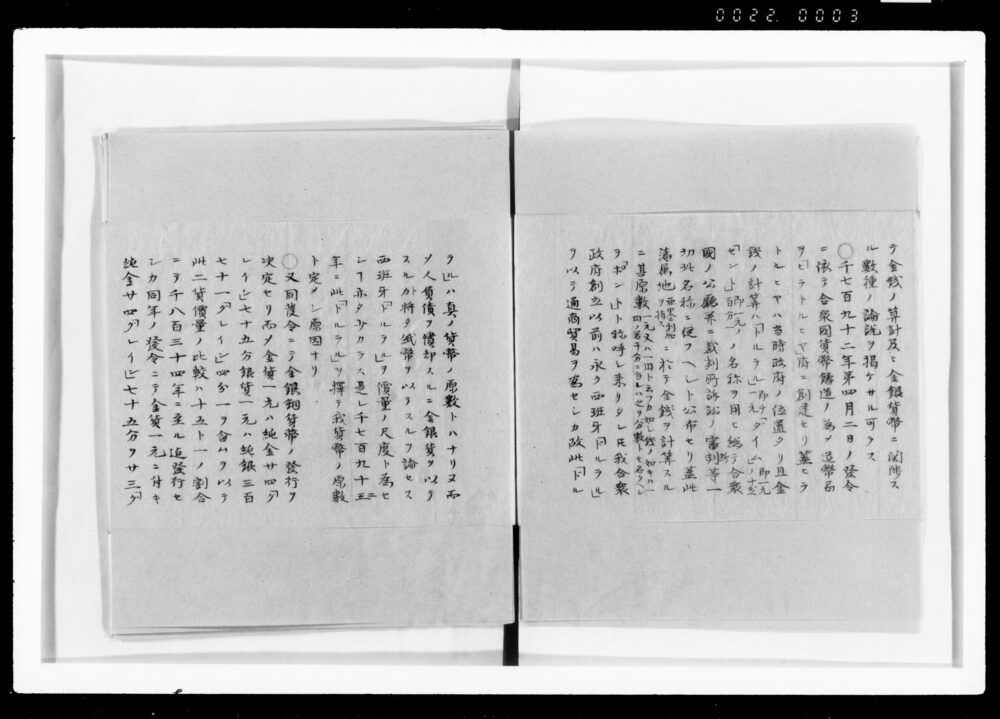 0022.0003
テ金銭ノ算計及ヒ金銀貨幣ニ関渉ス
ル数種ノ論説ヲ掲ケサル可ラス
○千七百九十二年第四月二日ノ發令
ニ依テ合衆国貨幣鑄造ノ為メ造幣局
ヲ「ヒラトルヒヤ」府ニ創建セリ蓋ヒラ
トルヒヤハ当時政府ノ位置タリ且金
銭ノ計算ハ「ドルラル」一元「ダイム」即一元ノ十分一
「セント」即一元ノ百分一ノ名称ヲ用ヒ総テ合衆
國ノ公廳并ニ裁判所訴訟ノ審判等一
切此名称ニ従フヘシト公布セリ蓋此
藩属地亜墨利加ヲ指スニ於テ金銭ヲ計算スル
ニ其原数
ヲ「ポンド」ト称呼シ来リタレ𪜈我合衆
政府創立以前ハ永ク西班牙「ドルラル」
ヲ以テ通商貿易ヲ為センカ故此「ドル
ラル」ハ真ノ貨幣ノ原数トハナリ又而
メ人負債ヲ償却スルニ金銀貨ヲ以テ
スルカ将タ紙幣ヲ以テスルヲ論セス
西班牙「ドルラル」ヲ價量ノ尺度ト為セ
シ亦タ少カラス是レ千七百九十二
年ニ此「ドルラル」ヲ擇テ我貨幣ノ原数
ト定メシ原因ナリ
○又同發令ニテ金銀銅貨幣ノ發行ヲ
決定セリ而メ金貨一元ハ純金廿四「グ
レイン」七十五分銀貨一元ハ純銀三百
七十一「グレイン」四分一ヲ含ムヲ以テ
此二貨價量ノ比較ハ十五ト一ノ割合
ニテ千八百三十四年ニ至ル迄發行セ
シカ同年ノ發令ニテ金貨一元ニ付キ
純金廿四「グレイン」七十五分ヲ廿三「グ